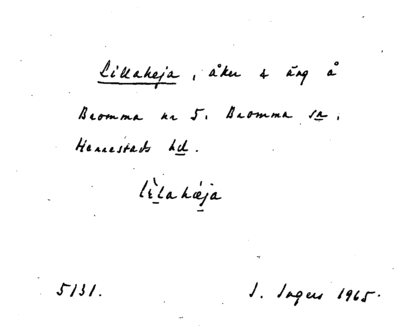 Lillaheja, åker & äng å
Bromma nr 5. Bromma sn.
Herrestads hd.
lèlahæ̀ja
5131. I. Ingers 1965.